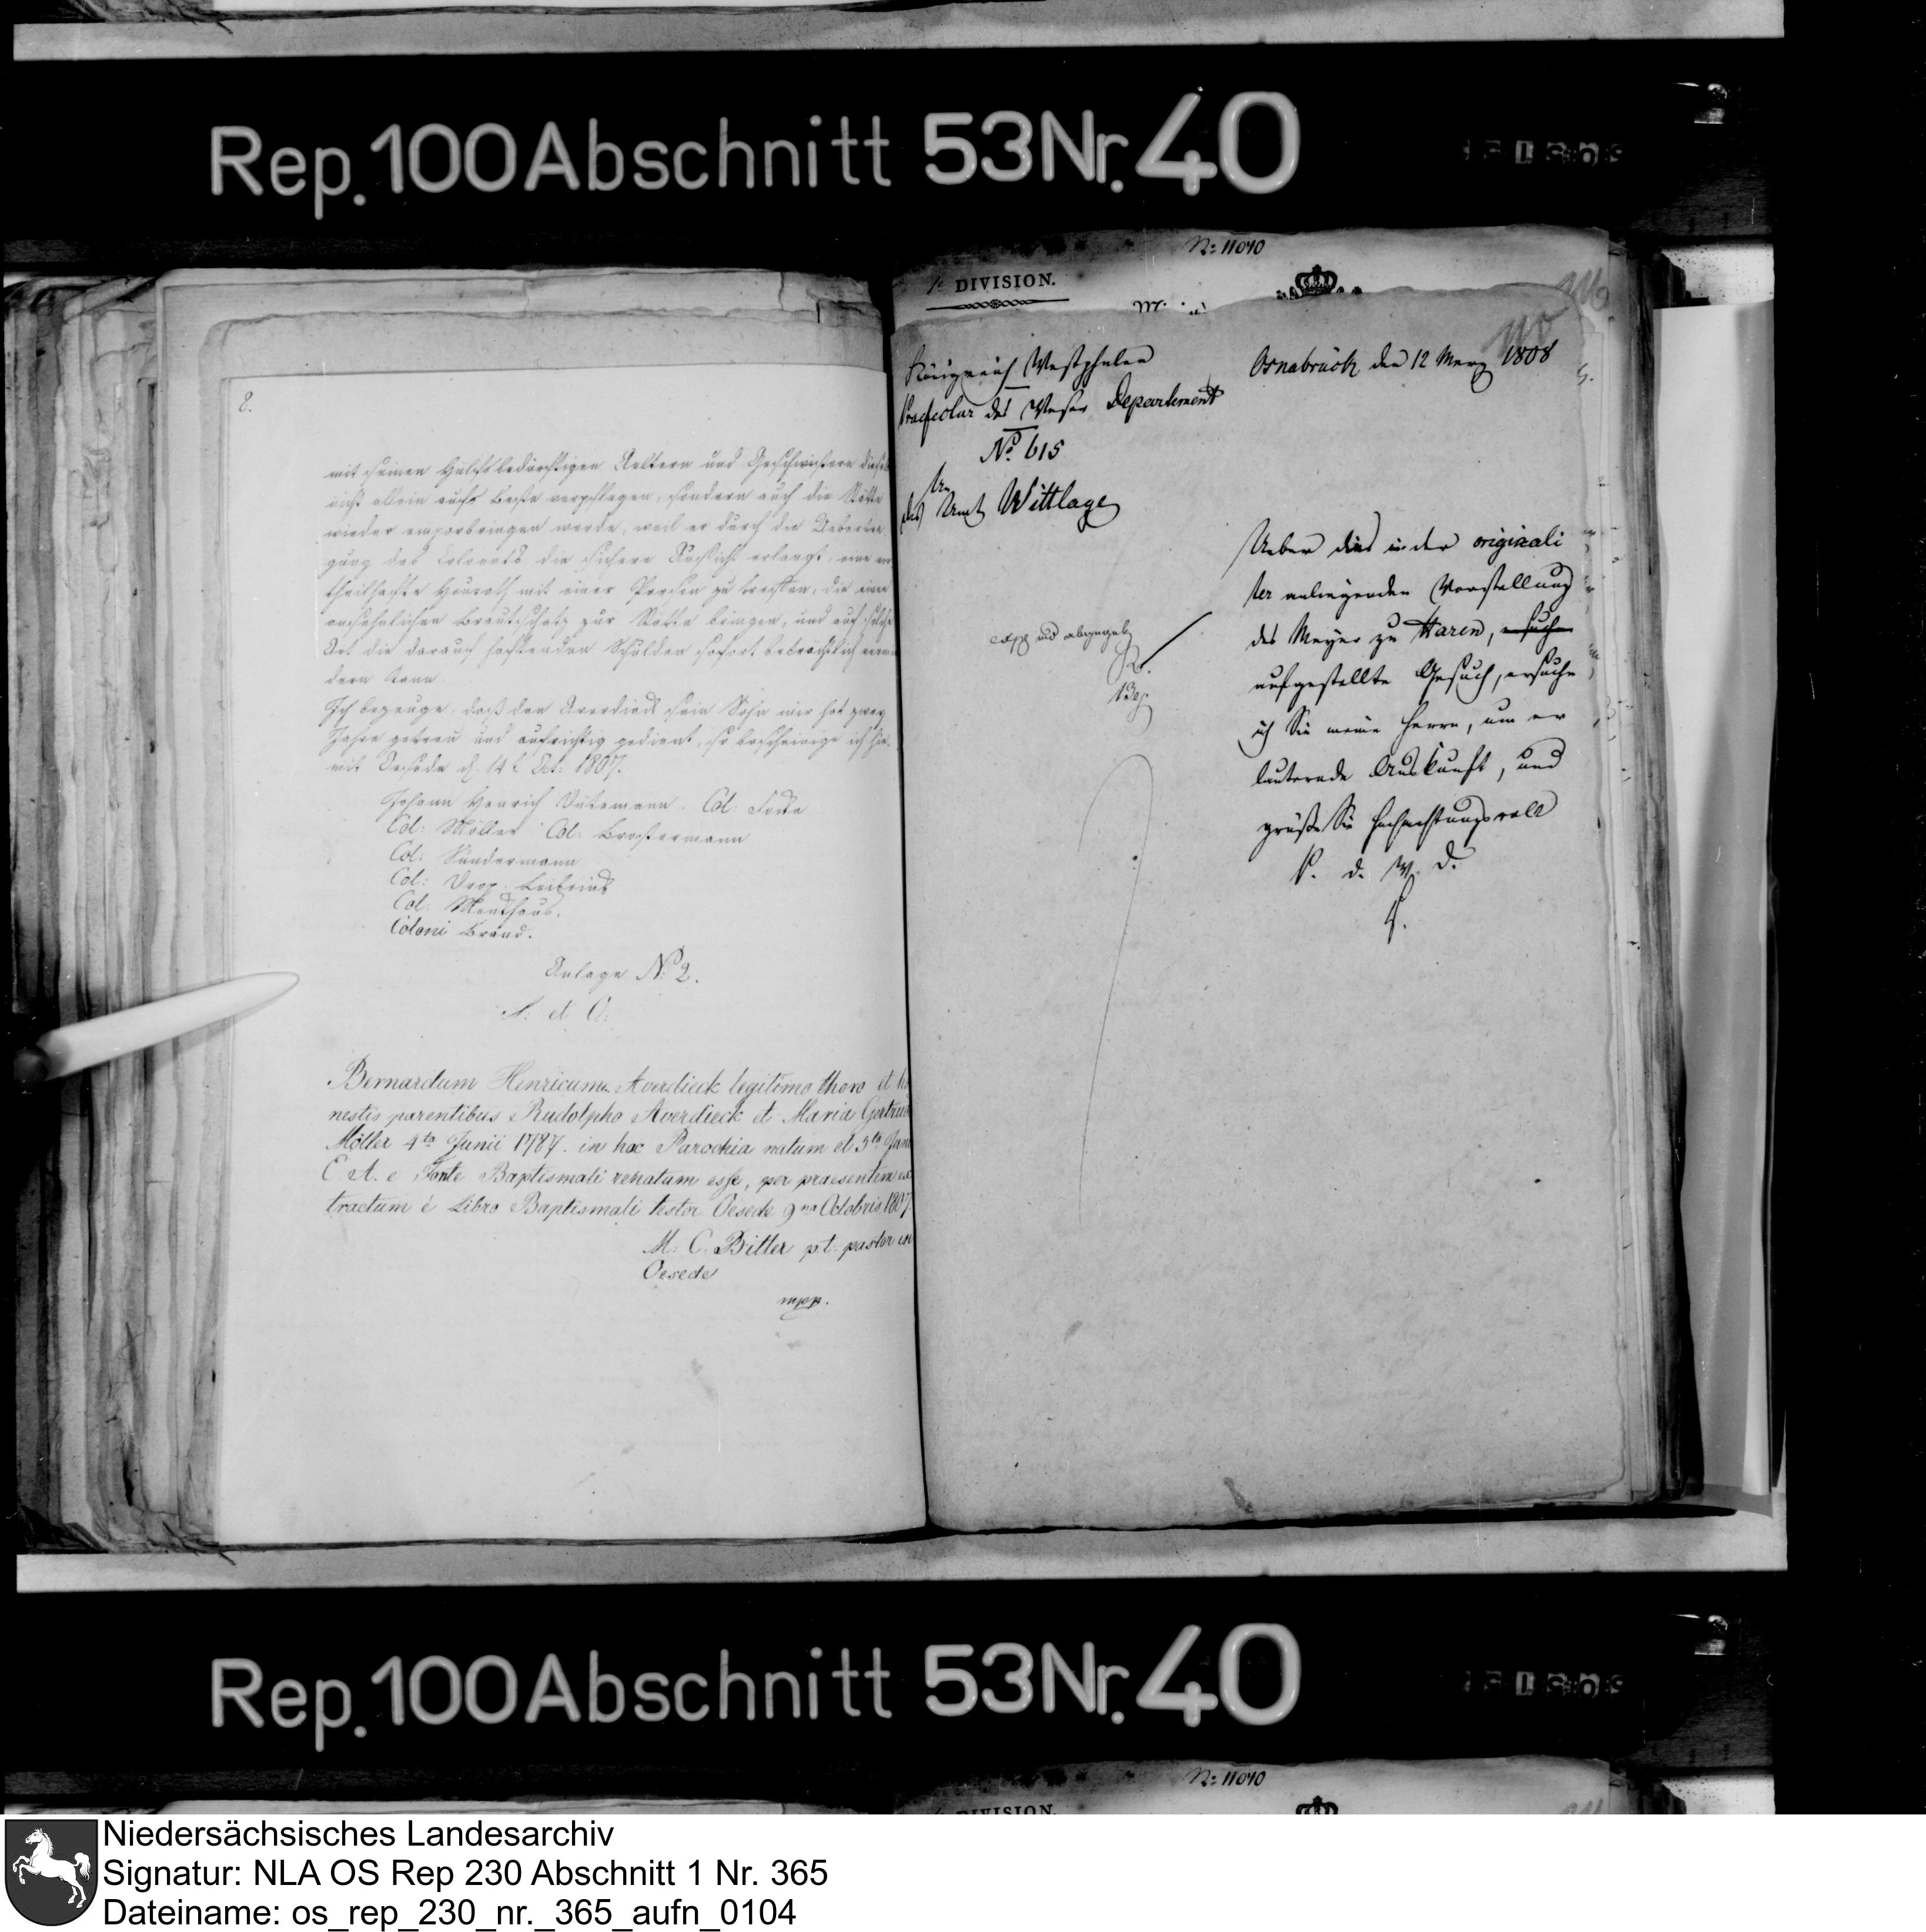 Rep. 100 Abschnitt 53 Nr. 40
8.
mit seinen Hülfsbedürftigen Aeltern und Geschwistern
nicht allein aufs Beste verpflegen, sondern auch die Stätte
wieder emporbringen werde, weil er durch die Uebertra
gung des Colonats die sichere Aussicht erlangt, eine
theilhafte Heurath mit einer Person zu treffen, die einen
ansehnlichen Brautschatz zur Stätte bringen, und auf solche
Art die darauf haftenden Schulden sofort beträchtlich
dern kann.
Ich bezeuge, daß den Averdieck sein Sohn mir hat zwey
Jahre getreu und aufrichtig gedient, so bescheinige ich hie-
mit Oesede d. 14 t. Oct: 1807.
Johann Henrich Col:
Col: Möller Col: Brostermann
Col: Sundermann
Col:
Col:
Coloni Brand.
Anlage No 2.
Bernardum Henricum Averdieck legitimo thoro et ho
nestis parentibus Rudolpho Averdieck et Maria Gertrud
Möller 4ta Junii 1787. in hac Parochia natum et 5ta Juni
E A. e Fonte Baptismali renatum esse, per praesentem ex
tractum è Libro Baptismali testor Oesede 9na Octobris 1807
M: C. Bitter p.t. pastor in
Oesede
mpp.
No 11040
1e DIVISION.
Königreich Westphalen
Praefectur des Weser Departement
No 615
An
das Amt Wittlage
Osnabrück den 12 Merz 1808
Ueber das in der originali
ter anliegenden Vorstellung
des Meyer zu Haren, ersuche
aufgestellte Gesuch, ersuche
ich Sie meine Herrn, um er
läuternde Auskunft, und
grüße Sie hochachtungsvoll
P. d. W. D.
exp und abgegeb
13 ej.
Rep. 100 Abschnitt 53 Nr. 40
No 11040
DIVISION.
Niedersächsisches Landesarchiv
Signatur: NLA OS Rep 230 Abschnitt 1 Nr. 365
Dateiname: os_rep_230_nr._365_aufn_0104